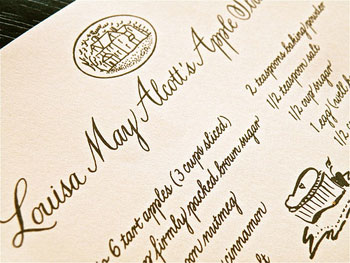 Louisa May Alcott's Apple
6 tart apples (3 cups sliced)
firmly packed brown sugar
nutmeg
cinnamon
2 teaspoons baking powder
1/2 teaspoon salt
1/2 cup sugar
1 egg (well